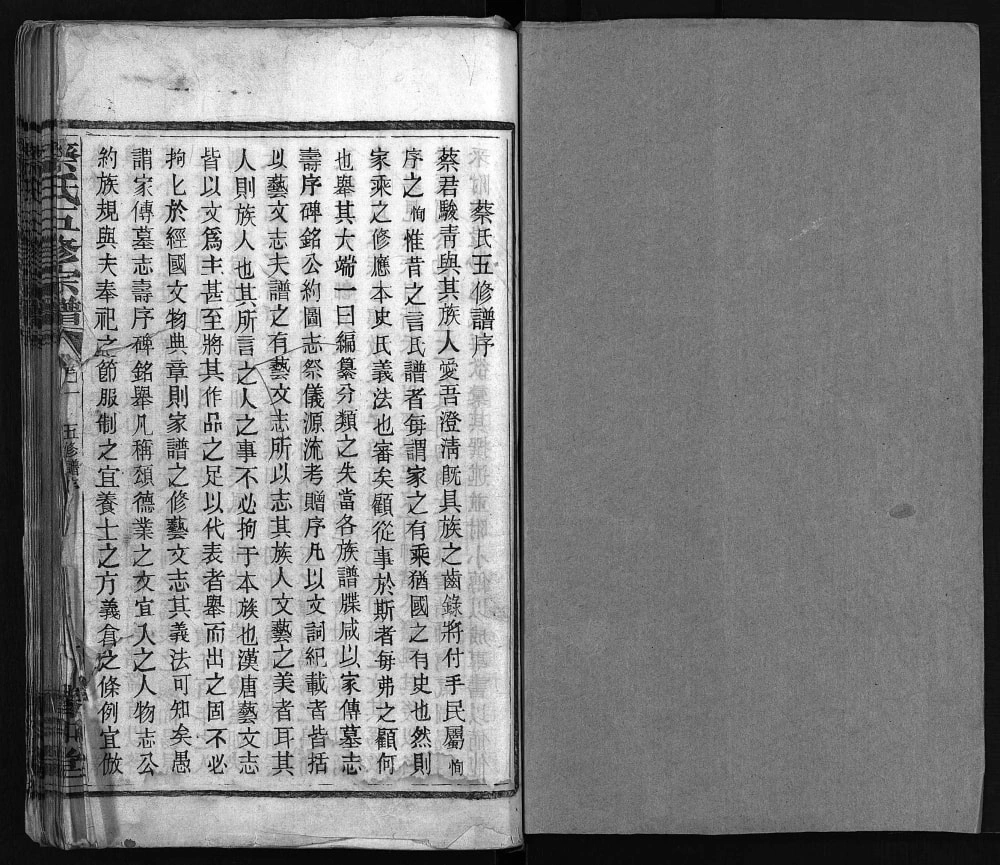 蔡氏五修譜序
蔡君駿靑與其族人愛吾澄淸旣具族之齒錄將付手民屬恂
序之恂惟昔之言氏譜者每謂家之有乘猶國之有史也然則
家乘之修應本史氏義法也審矣顧從事於斯者每弗之顧何
也舉其大端一曰編纂分類之失當各族譜牒咸以家傳墓志
壽序碑銘公約圖志祭儀源流考贈序凡以文詞紀載者皆括
以藝文志夫譜之有藝文志所以志其族人文藝之美者耳其
人則族人也其所言之人之事不必拘于本族也漢唐藝文志
皆以文爲主甚至將其作品之足以代表者舉而出之固不必
拘匕於經國文物典章則家譜之修藝文志其義法可知矣愚
謂家傳墓志壽序碑銘舉凡稱頌德業之文宜入之人物志公
約族規與夫奉祀之節服制之宜養士之方義倉之條例宜倣
蔡氏五修宗譜
五修譜序